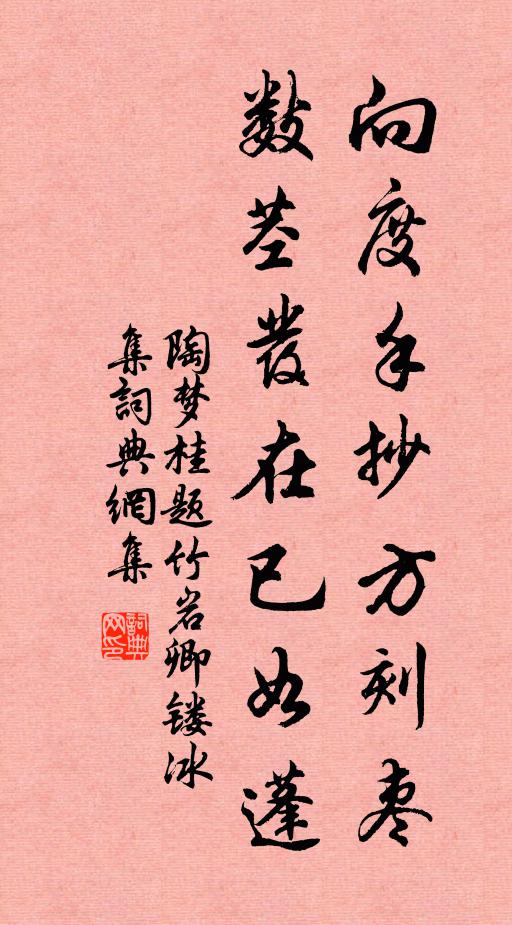 向度手抄方刻枣
数茎發在已如蓬
陶梦桂题竹岩卿镂冰
集詞典網集
詞典网印